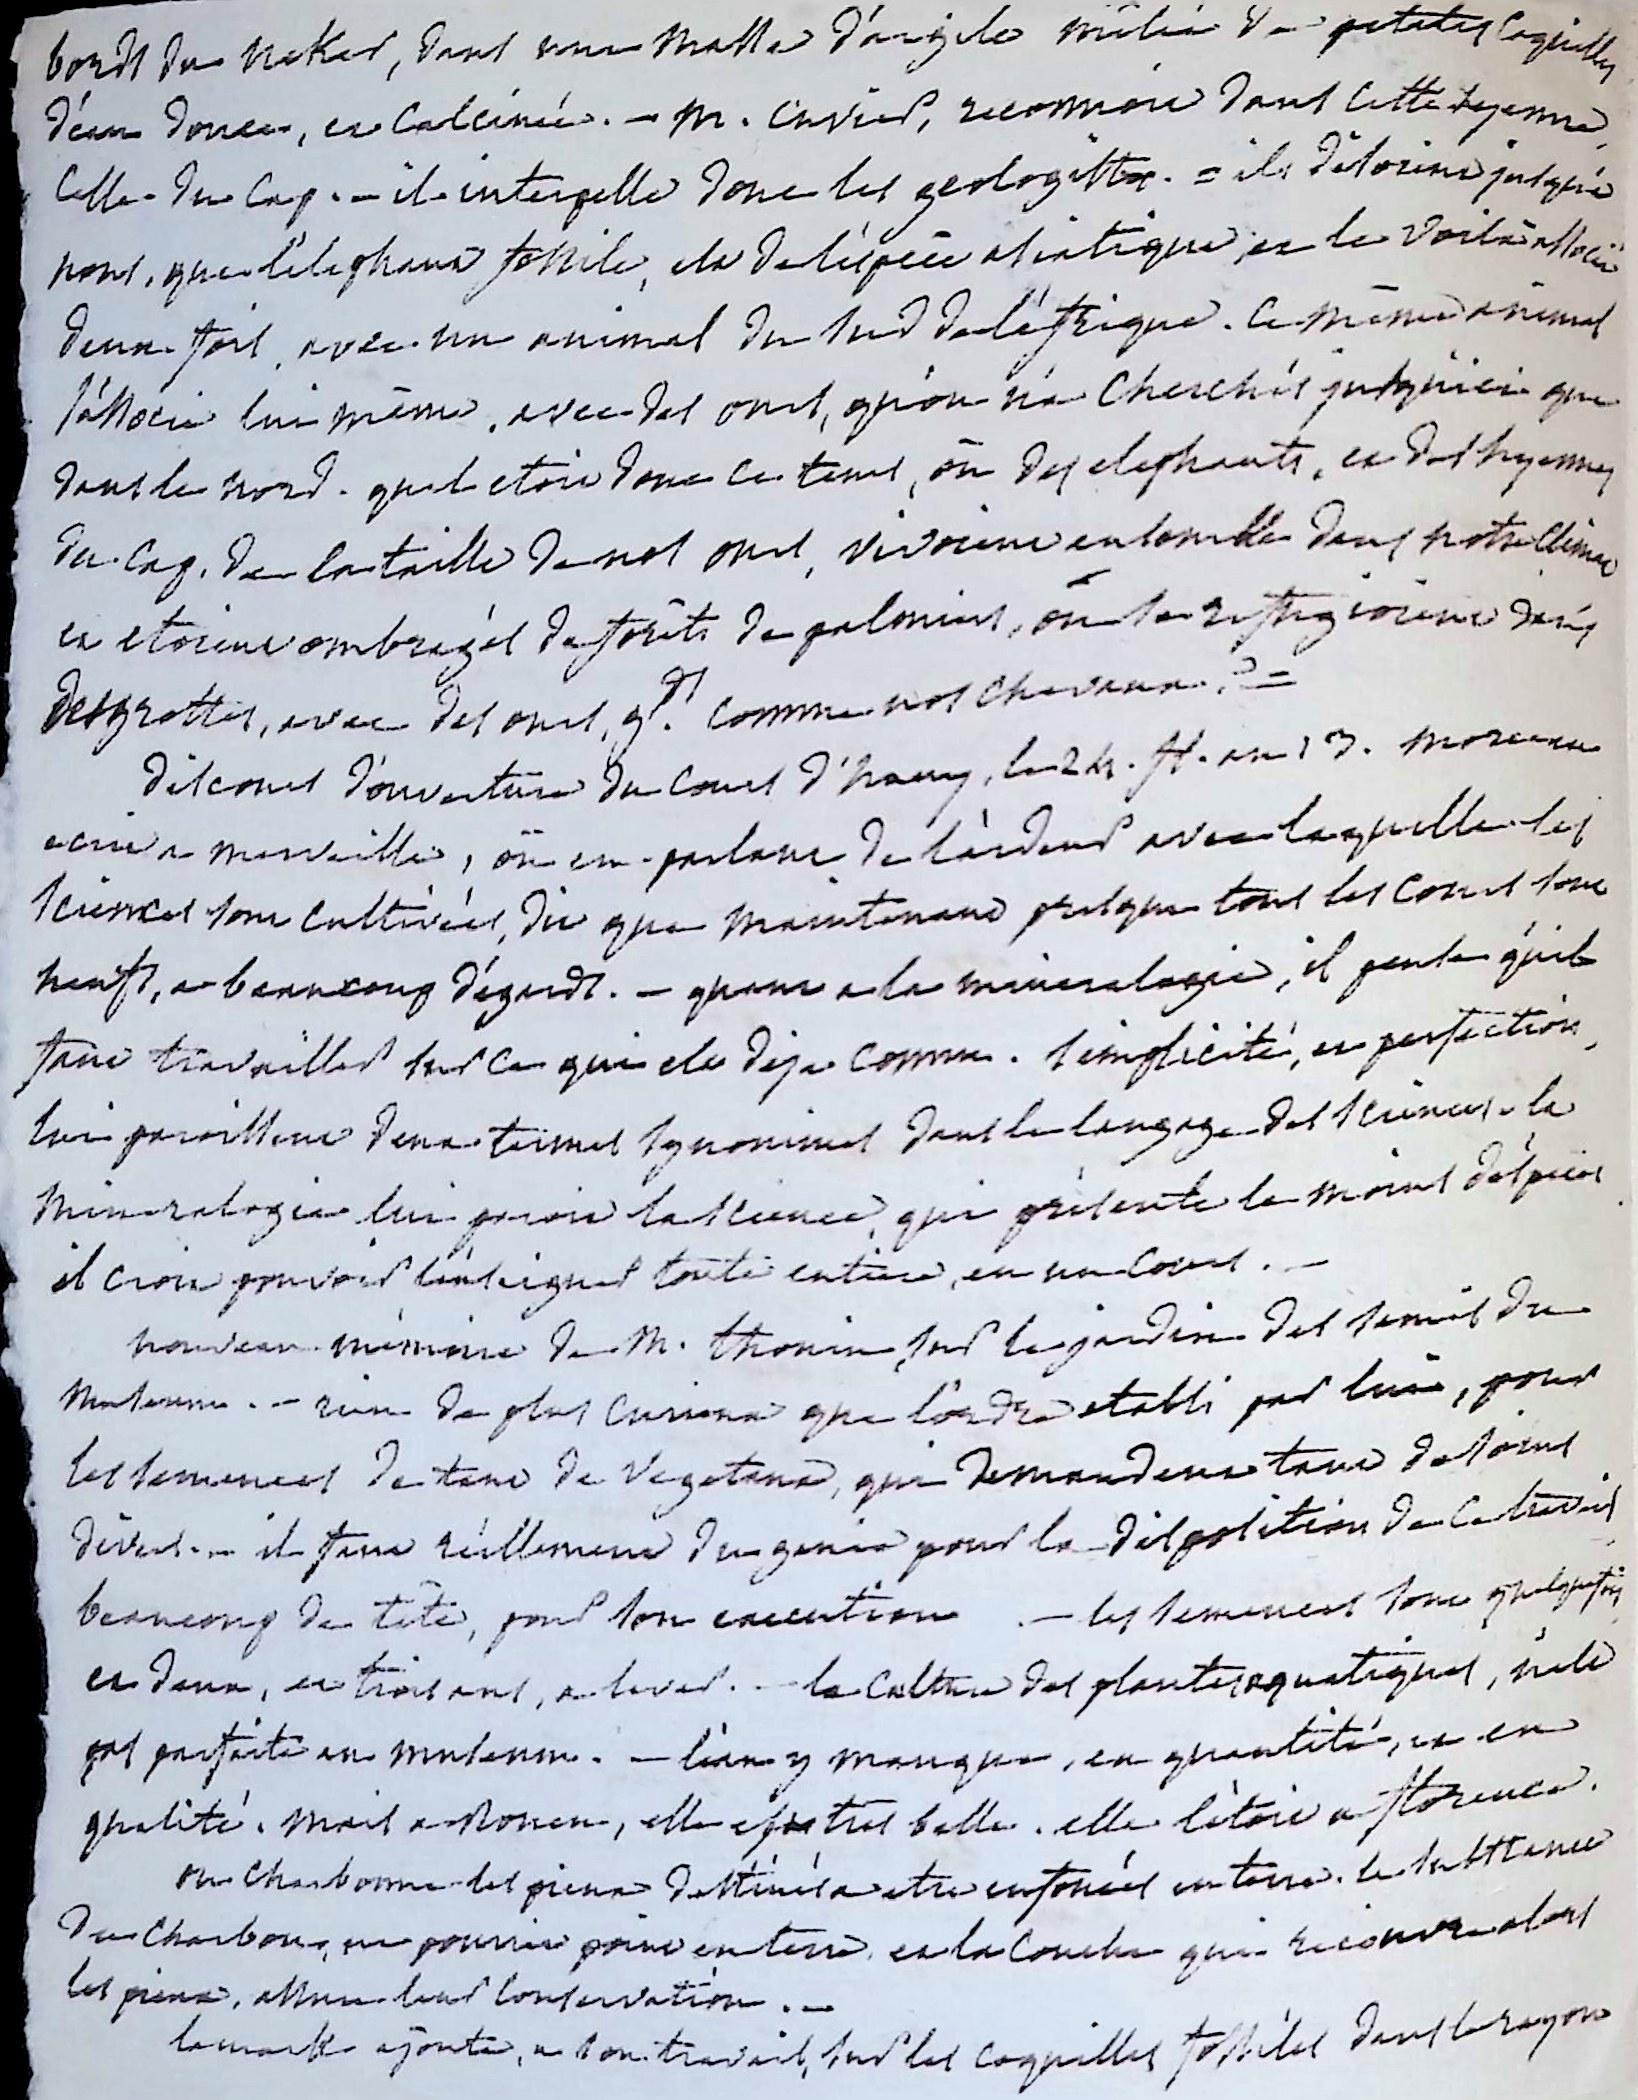 bords du neker, dans une masse d'argile mêlée de petites coquilles
d'eau douce, et calcinée. - M. Cuvier, reconnoit dans cette hyenne,
celle du Cap. - il interpelle donc les geologistes. = ils disoient jusqu'à
nous, que l'elephant fossile, est de l'espèce asiatique, et le voilà associé
deux fois, avec un animal du sud de l'afrique. ce même animal
s'associe lui même, avec des ours, qu'on n'a cherchés jusqu'ici que
dans le nord. quel etoit donc ce tems, où des elephants, et des hyennes
du Cap, de la taille de nos ours, vivoient ensemble dans notre climat
et etoient ombragés de forêts de palmiers, où se refugioient dans
des grottes, avec des ours, gds. comme nos chevaux ? =
discours d'ouverture du cours d'hauy, le 24. fl. an 13. morceau
ecrit a merveille, où en parlant de l'ardeur avec laquelle les
sciences sont cultivées, dit que maintenant presque tous les cours sont
neufs, a beaucoup d'égards. - quant a la mineralogie, il pense qu'il
faut travailler sur ce qui est déja connu. simplicité, et perfection,
lui paroissent deux termes synonimes dans le langage des sciences. la
mineralogie lui paroit la science, qui présente le moins d'espèces
il croit pouvoir l'enseigner toute entiere, en un cours. -
nouveau mémoire de M. thouin, sur le jardin des semis du
museum. - rien de plus curieux que l'ordre etabli par lui, pour
les semences de tant de vegetaux, qui demandent tant de soins
divers. - il faut réellement du genie pour la disposition de ce travail,
beaucoup de tête, pour son execution. - les semences sont quelquefois
et deux, et trois ans, a lever. - la culture des plantes aquatiques, n'est
pas parfaite au museum. - l'eau y manque, en quantité, et en
qualité. mais a Rouen, elle est très belle. elle l'étoit a florence.
on charbonne les pieux destinés a etre enfoncés en terre. la substance
du charbon, ne pourrit point en terre, et la couche qui recouvre alors
les pieux, assure leur conservation. -
lamark ajoute, a son travail, sur les coquilles fossiles dans le rayon